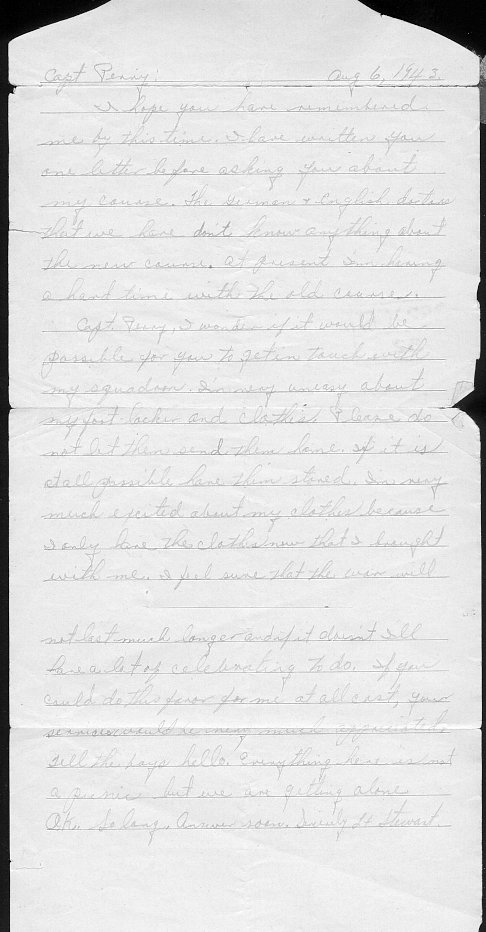 Capt Penny: Aug 6, 1943.
I hope you have remembered
me by this time. I have written you
one letter before asking you about
my course. The German & English doctors
that we have don't know anything about
the new course. At present I'm having
a hard time with the old course.
Capt. Penny, I wonder if it would be
possible for you to get in touch with
my squadron. I'm very uneasy about
my foot locker and clothes. Please do
not let them send them home. If it is
at all possible have them stored. I'm very
much excited about my clothes because
I only have the clothes now that I brought
with me. I feel sure that the war will
not last much longer and if it doesn't I'll
have a lot of celebrating to do. If you
could do this favor for me at all cost, your
services would be very much appreciated.
Tell the boys hello. Everything here is not
a picnic but we are getting alone
OK. So long. Answer soon. Lt Stewart.